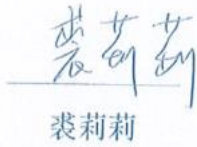 裘莉莉
裘莉莉